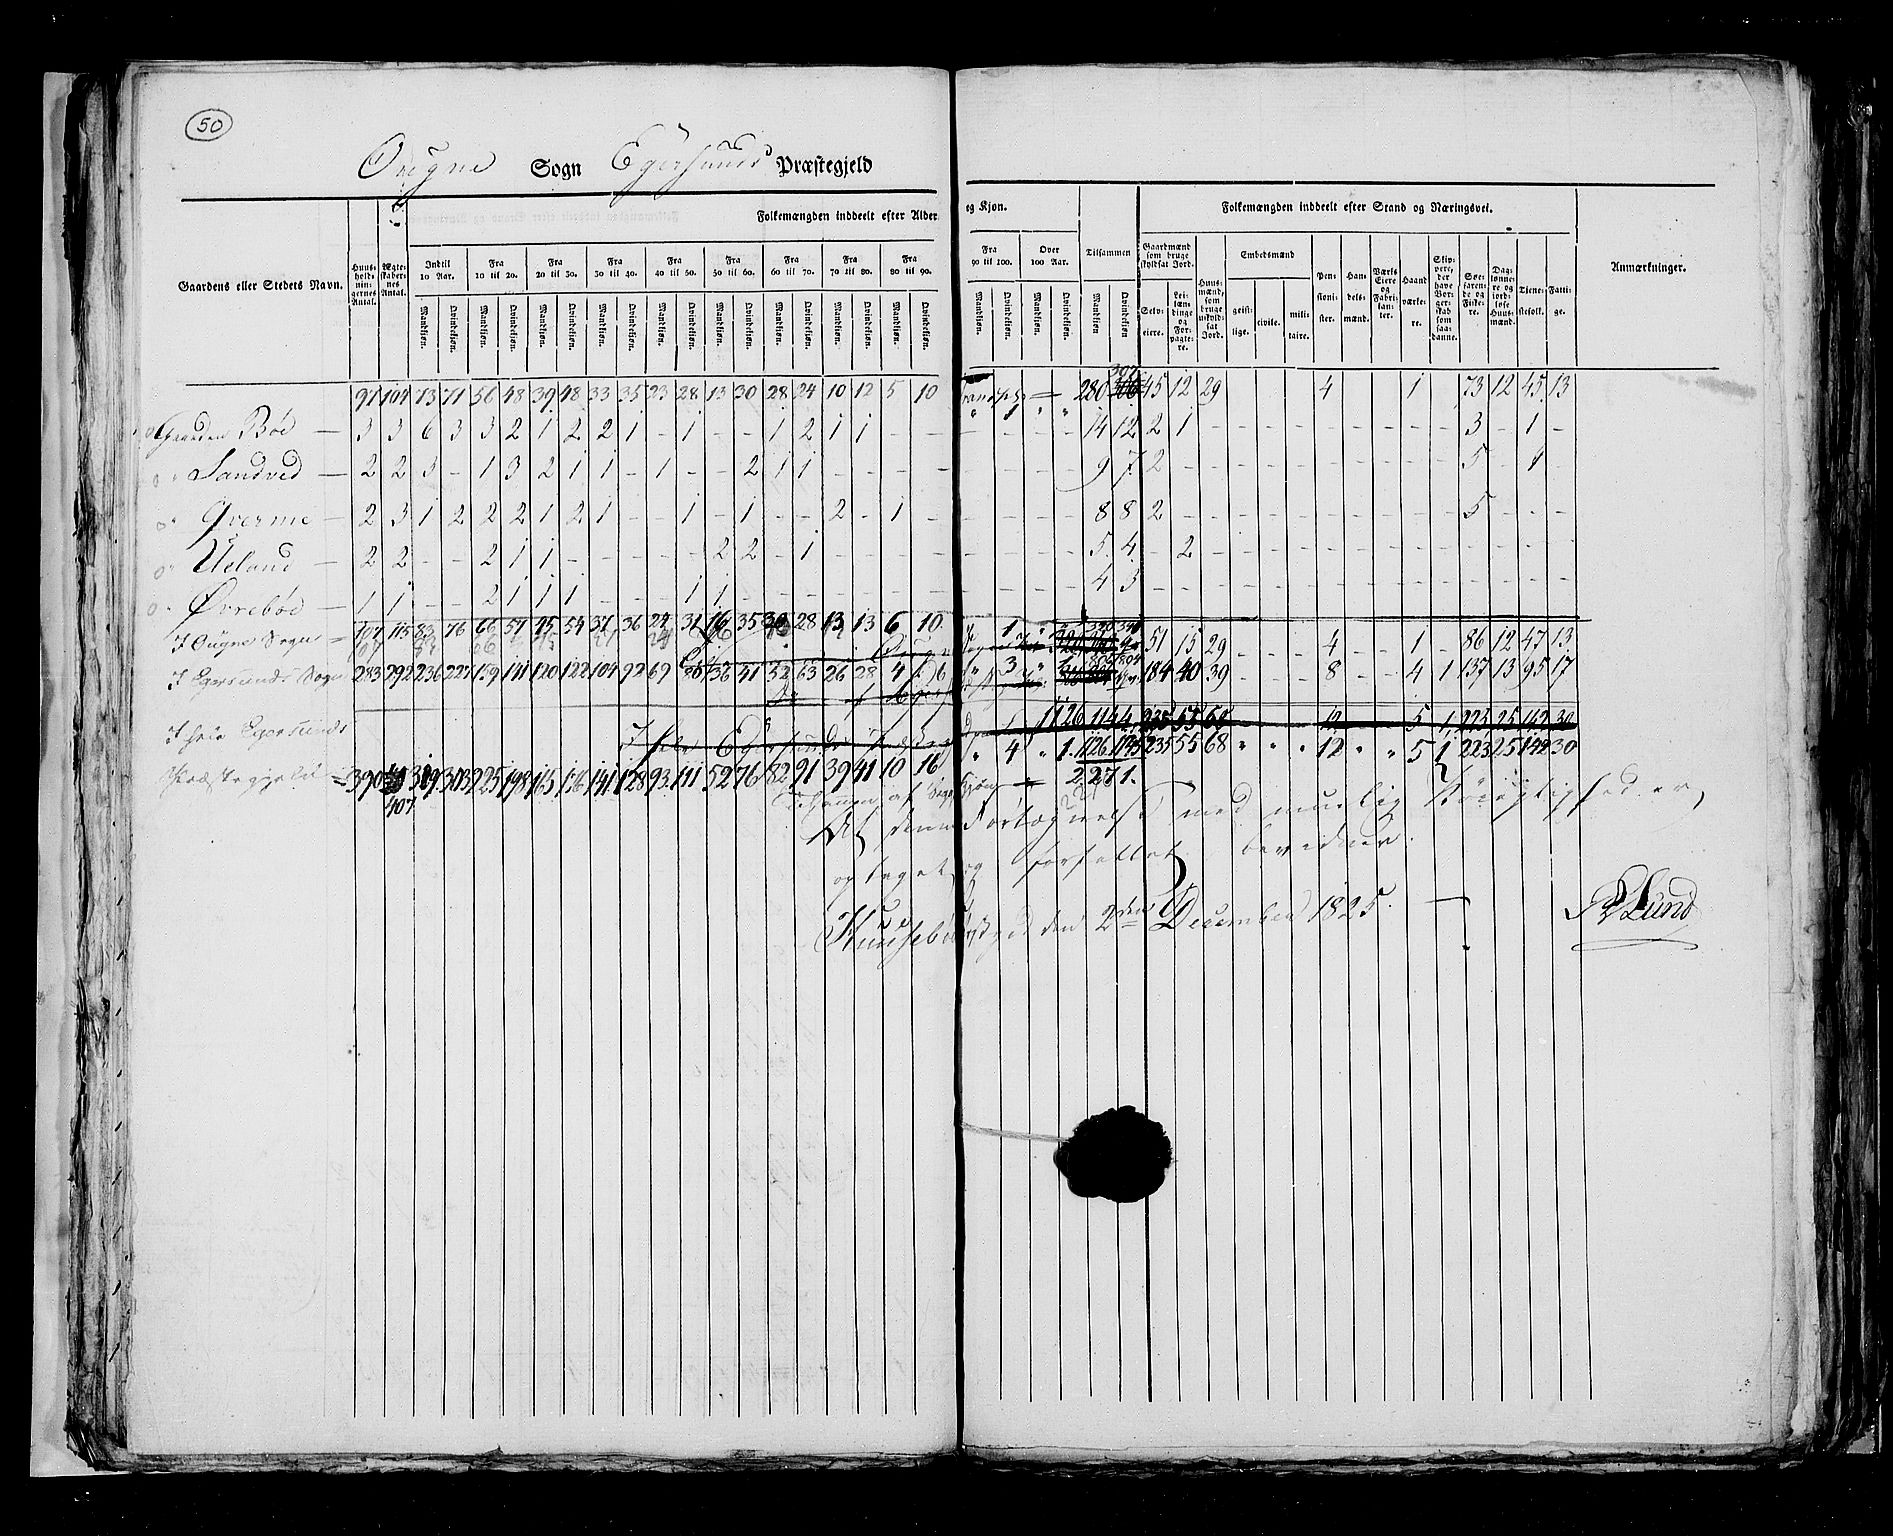 50
Ougne Sogn Egersunds Præstegjeld
Folkemængden inddeelt efter Alder
og Kjøn.
Folkemængden inddeelt efter Stand og Næringsvei.
Gaardens eller Stedets Navn.
Huus-holdningernes Antal.
Ægteskabernes Antal.
Indtil 10 Aar.
Fra 10 til 20.
Fra 20 til 30.
Fra 30 til 40.
Fra 40 til 50.
Fra 50 til 60.
Fra 60 til 70.
Fra 70 til 80.
Fra 80 til 90.
Fra 90 til 100.
Over 100 Aar.
Tilsammen
Gaardmænd som bruge skyldsat Jord.
Huusmænd, som bruge uskyldsat Jord.
Embedsmænd
Pensionister.
Handelsmænd.
Værks Eiere og Fabrikanter.
Haandværkere.
Skippere, der have Borgerskab som saadanne.
Søefarende og Fiskere.
Dagslønnere og jordløse Huusmænd.
Tjenestefolk.
Fattige.
Anmærkninger.
Mandkjøn. Qvindekjøn.
Selveiere. Leilændinge og Forpagtere.
geistlige. civile. militaire.
97 104 73 71 56 48 39 48 33 35 23 28 13 30 28 24 10 12 5 10 Transp. 280 307 45 12 29 4 1 73 12 45 13
Gaarden Bøe 3 3 6 3 3 2 1 2 2 1 - 1 - - 1 2 1 1 - - 14 12 2 1 - 3 - 1 -
" Sandved 2 2 3 - 1 3 2 1 1 - 1 - - 2 1 1 - - - - 9 7 2 - 5 - 1 -
" Qverme 2 3 1 2 2 2 1 2 1 - - 1 - 1 - - 2 - 1 - 8 8 2 - 5 - - -
" Ueland 2 2 - - 2 1 1 - - - - - 2 2 - 1 - - - - 5 4 - 2 -
" Ørrebøe 1 1 - - 2 1 1 1 - - - 1 1 - 4 3 -
I Ougne Sogn = 107 115 83 76 66 57 45 54 37 36 24 31 16 35 30 28 13 13 6 10 " 1 " 51 15 29 4 1 86 12 47 13
I Egersunds Sogn 283 292 236 227 159 141 120 122 104 92 69 80 36 41 52 63 26 28 4 6 " 3 " 184 40 39 8 4 1 137 13 95 17
1126 1144 235 55 68 12 5 1 223 25 142 30
I hele Egersunds
Præstegjeld = 390 407 319 303 225 198 165 176 141 128 93 111 52 76 82 91 39 41 10 16 " 4 " 1. 1126 1145 235 55 68 " " " 12 " " 5 1 223 25 142 30
Tilsammen af begge Kjøn = 2271.
At denne Fortegnelse med muelig Nøiagtighed er
optaget og forfattet bevidner.
Huusebøe den 2den December 1825.
Lund